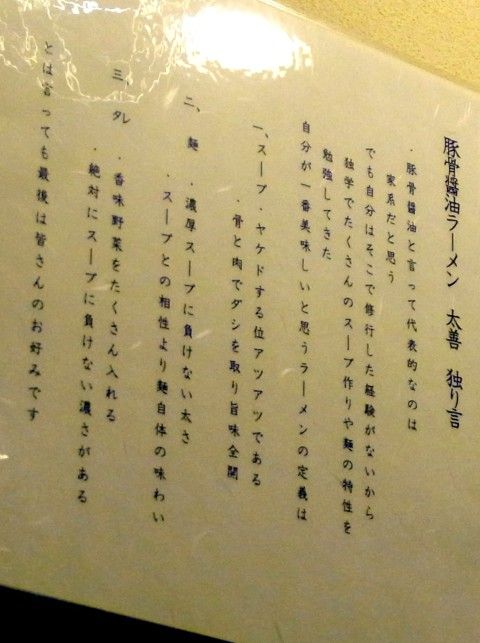 豚骨醤油ラーメン 太善 独り言
・豚骨醤油と言って代表的なのは
家系だと思う
でも自分はそこで修行した経験がないから
独学でたくさんのスープ作りや麺の特性を
勉強してきた
自分が一番美味しいと思うラーメンの定義は
一、スープ ・ヤケドする位アツアツである
・骨と肉でダシを取り旨味全開
二、麺 ・濃厚スープに負けない太さ
・スープとの相性より麺自体の味わい
三、タレ ・香味野菜をたくさん入れる
・絶対にスープに負けない濃さがある
とは言っても最後は皆さんのお好みです